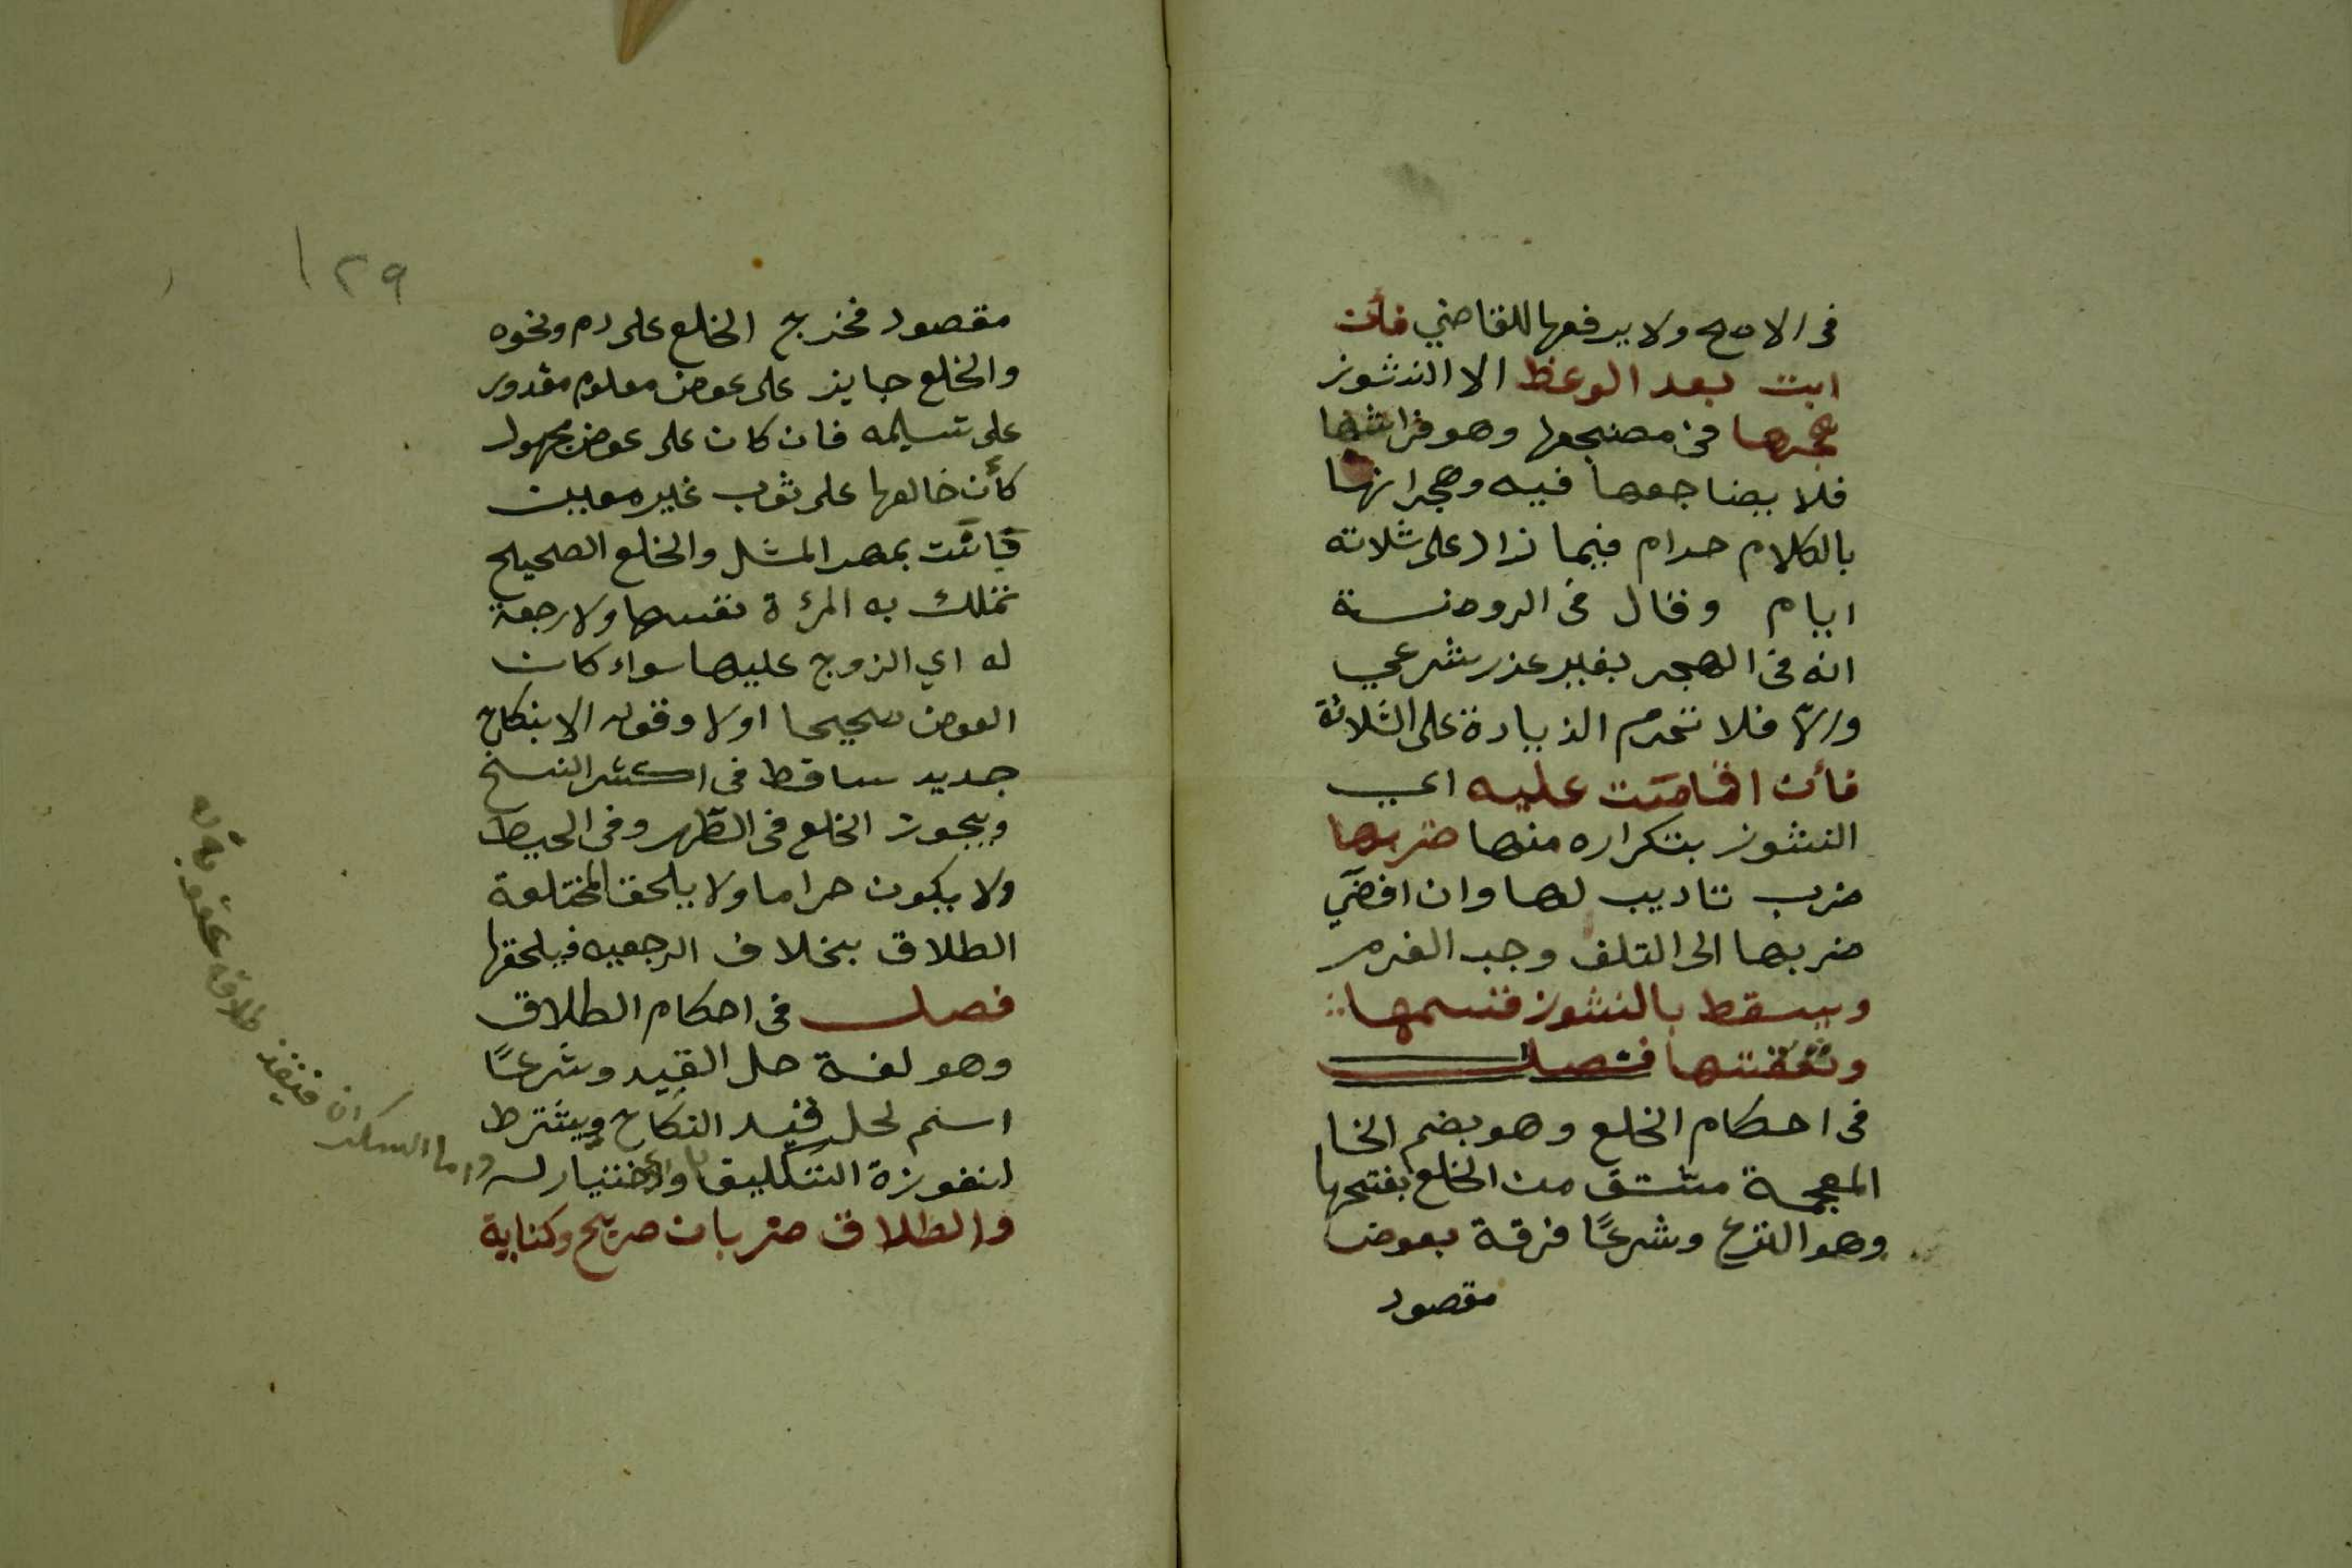 فى الاصح ولا يرفعها للقاضي فأن
ابت بعد الوعظ الا النشوز
هجرها فى مضجعها وهو فراشها
فلا يضاجعها فيه وهجرانها
بالكلام حرام فيما زاد على ثلاثه
ايام وقال فى الروضة
انه فى الهجر بغير عذر شرعي
والّا فلا تحرم الزيادة على الثلاثة
فأن اقامت عليه اي
النشوز بتكراره منها ضربها
ضرب تاديب لها وان افضى
ضربها الى التلف وجب الغرم
ويسقط بالنشوز قسمها
ونفقتها فصل
فى احكام الخلع وهو بضم الخا
المعجمة مشتق من الخلع بفتحها
وهو النزع وشرعًا فرقة بعوض
مقصود
١٢٩
مقصود فخرج الخلع على دم ونحوه
والخلع جايز على عوض معلوم مقدور
على تسليمه فان كان على عوض مجهول
كأن خالعها على ثوب غير معين
بانت بمهر المثل والخلع الصحيح
تملك به المرءة نفسها ولا رجعة
له اي الزوج عليها سواء كان
العوض صحيحا اولا وقوله الا بنكاح
جديد ساقط فى اكثر النسخ
ويجوز الخلع فى الطهر وفى الحيط
ولا يكون حراما ولا يلحق المختلعة
الطلاق بخلاف الرجعيه فيلحقها
فصل فى احكام الطلاق
وهو لغة حل القيد وشرعًا
اسم لحل قيد النكاح ويشترط
لنفوزة التكليف والاختيار
واما السكران فينفذ طلاقه عقوبة له
والطلاق ضربان صريح وكناية